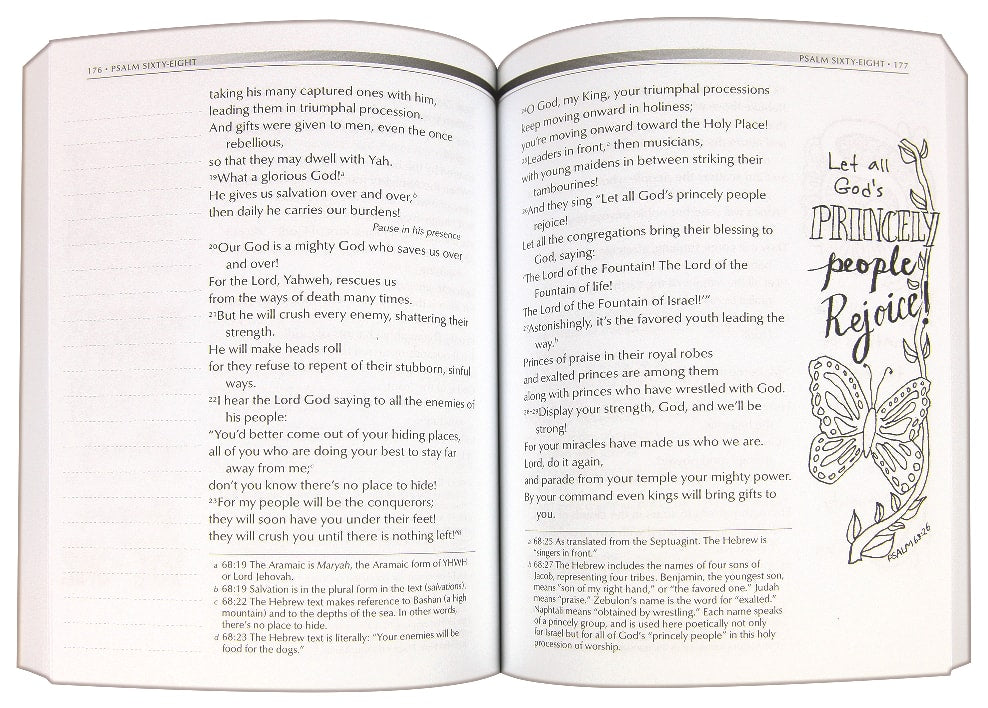 176 • PSALM SIXTY-EIGHT
taking his many captured ones with him,
leading them in triumphal procession.
And gifts were given to men, even the once
rebellious,
so that they may dwell with Yah.
19What a glorious God!a
He gives us salvation over and over,b
then daily he carries our burdens!
Pause in his presence
20Our God is a mighty God who saves us over
and over!
For the Lord, Yahweh, rescues us
from the ways of death many times.
21But he will crush every enemy, shattering their
strength.
He will make heads roll
for they refuse to repent of their stubborn, sinful
ways.
22I hear the Lord God saying to all the enemies of
his people:
“You’d better come out of your hiding places,
all of you who are doing your best to stay far
away from me;c
don’t you know there’s no place to hide!
23For my people will be the conquerors;
they will soon have you under their feet!
they will crush you until there is nothing left!”d
a 68:19 The Aramaic is Maryah, the Aramaic form of YHWH
or Lord Jehovah.
b 68:19 Salvation is in the plural form in the text (salvations).
c 68:22 The Hebrew text makes reference to Bashan (a high
mountain) and to the depths of the sea. In other words,
there’s no place to hide.
d 68:23 The Hebrew text is literally: “Your enemies will be
food for the dogs.”
PSALM SIXTY-EIGHT • 177
24O God, my King, your triumphal processions
keep moving onward in holiness;
you’re moving onward toward the Holy Place!
25Leaders in front,a then musicians,
with young maidens in between striking their
tambourines!
26And they sing “Let all God’s princely people
rejoice!
Let all the congregations bring their blessing to
God, saying:
‘The Lord of the Fountain! The Lord of the
Fountain of life!
The Lord of the Fountain of Israel!’”
27Astonishingly, it’s the favored youth leading the
way.b
Princes of praise in their royal robes
and exalted princes are among them
along with princes who have wrestled with God.
28-29Display your strength, God, and we’ll be
strong!
For your miracles have made us who we are.
Lord, do it again,
and parade from your temple your mighty power.
By your command even kings will bring gifts to
you.
a 68:25 As translated from the Septuagint. The Hebrew is
“singers in front.”
b 68:27 The Hebrew includes the names of four sons of
Jacob, representing four tribes. Benjamin, the youngest son,
means “son of my right hand,” or “the favored one.” Judah
means “praise.” Zebulon’s name is the word for “exalted.”
Naphtali means “obtained by wrestling.” Each name speaks
of a princely group, and is used here poetically not only
for Israel but for all of God’s “princely people” in this holy
procession of worship.
Let all
God's
PRINCELY
people
Rejoice!
PSALM 68:26